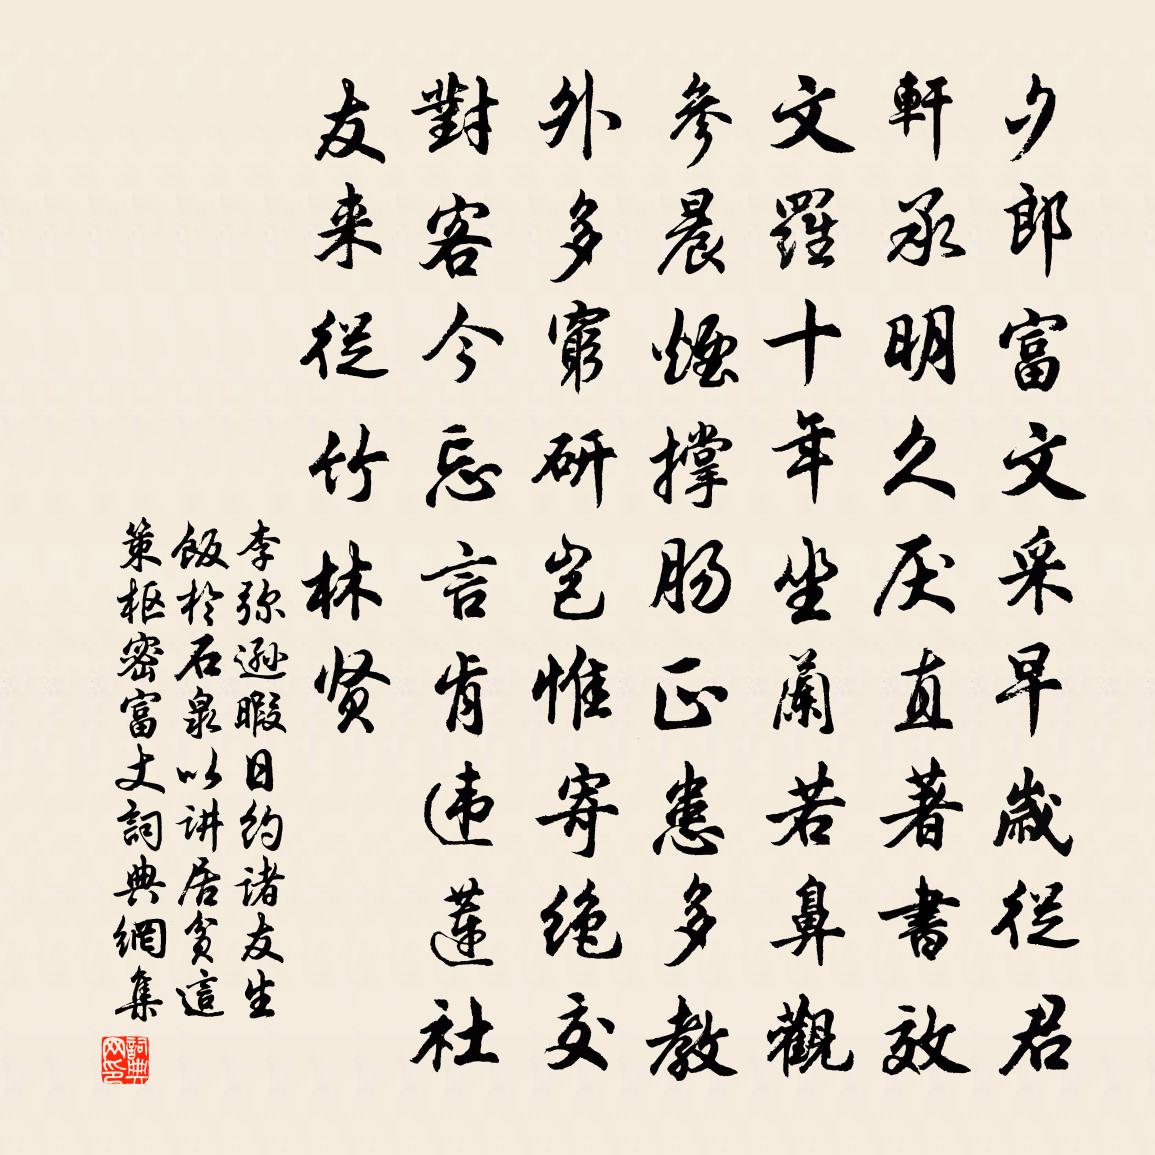 夕郎富文采早歲從君
軒承明久厌直著書效
文羅十年坐蘭若鼻觀
參晨煙撑肠正患多教
外多窮研岂惟寄绝交
對客今忘言肯违蓮社
友来從竹林贤
李弥遜暇日约诸友生
飯於石泉以讲居贫這
策枢密富丈詞典網集
詞典网印